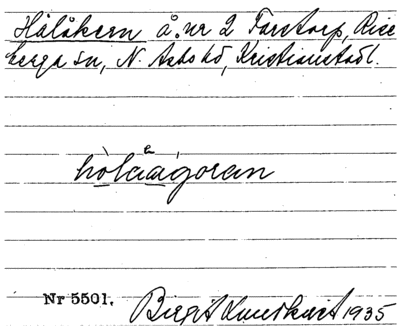 Hålåkern å. nr 2 Farstorp, Rise
berga sn, N. Åsbo hd, Kristianstadl.
e
hòlaágoran
Nr 5501. Birgit Lundkvist 1935